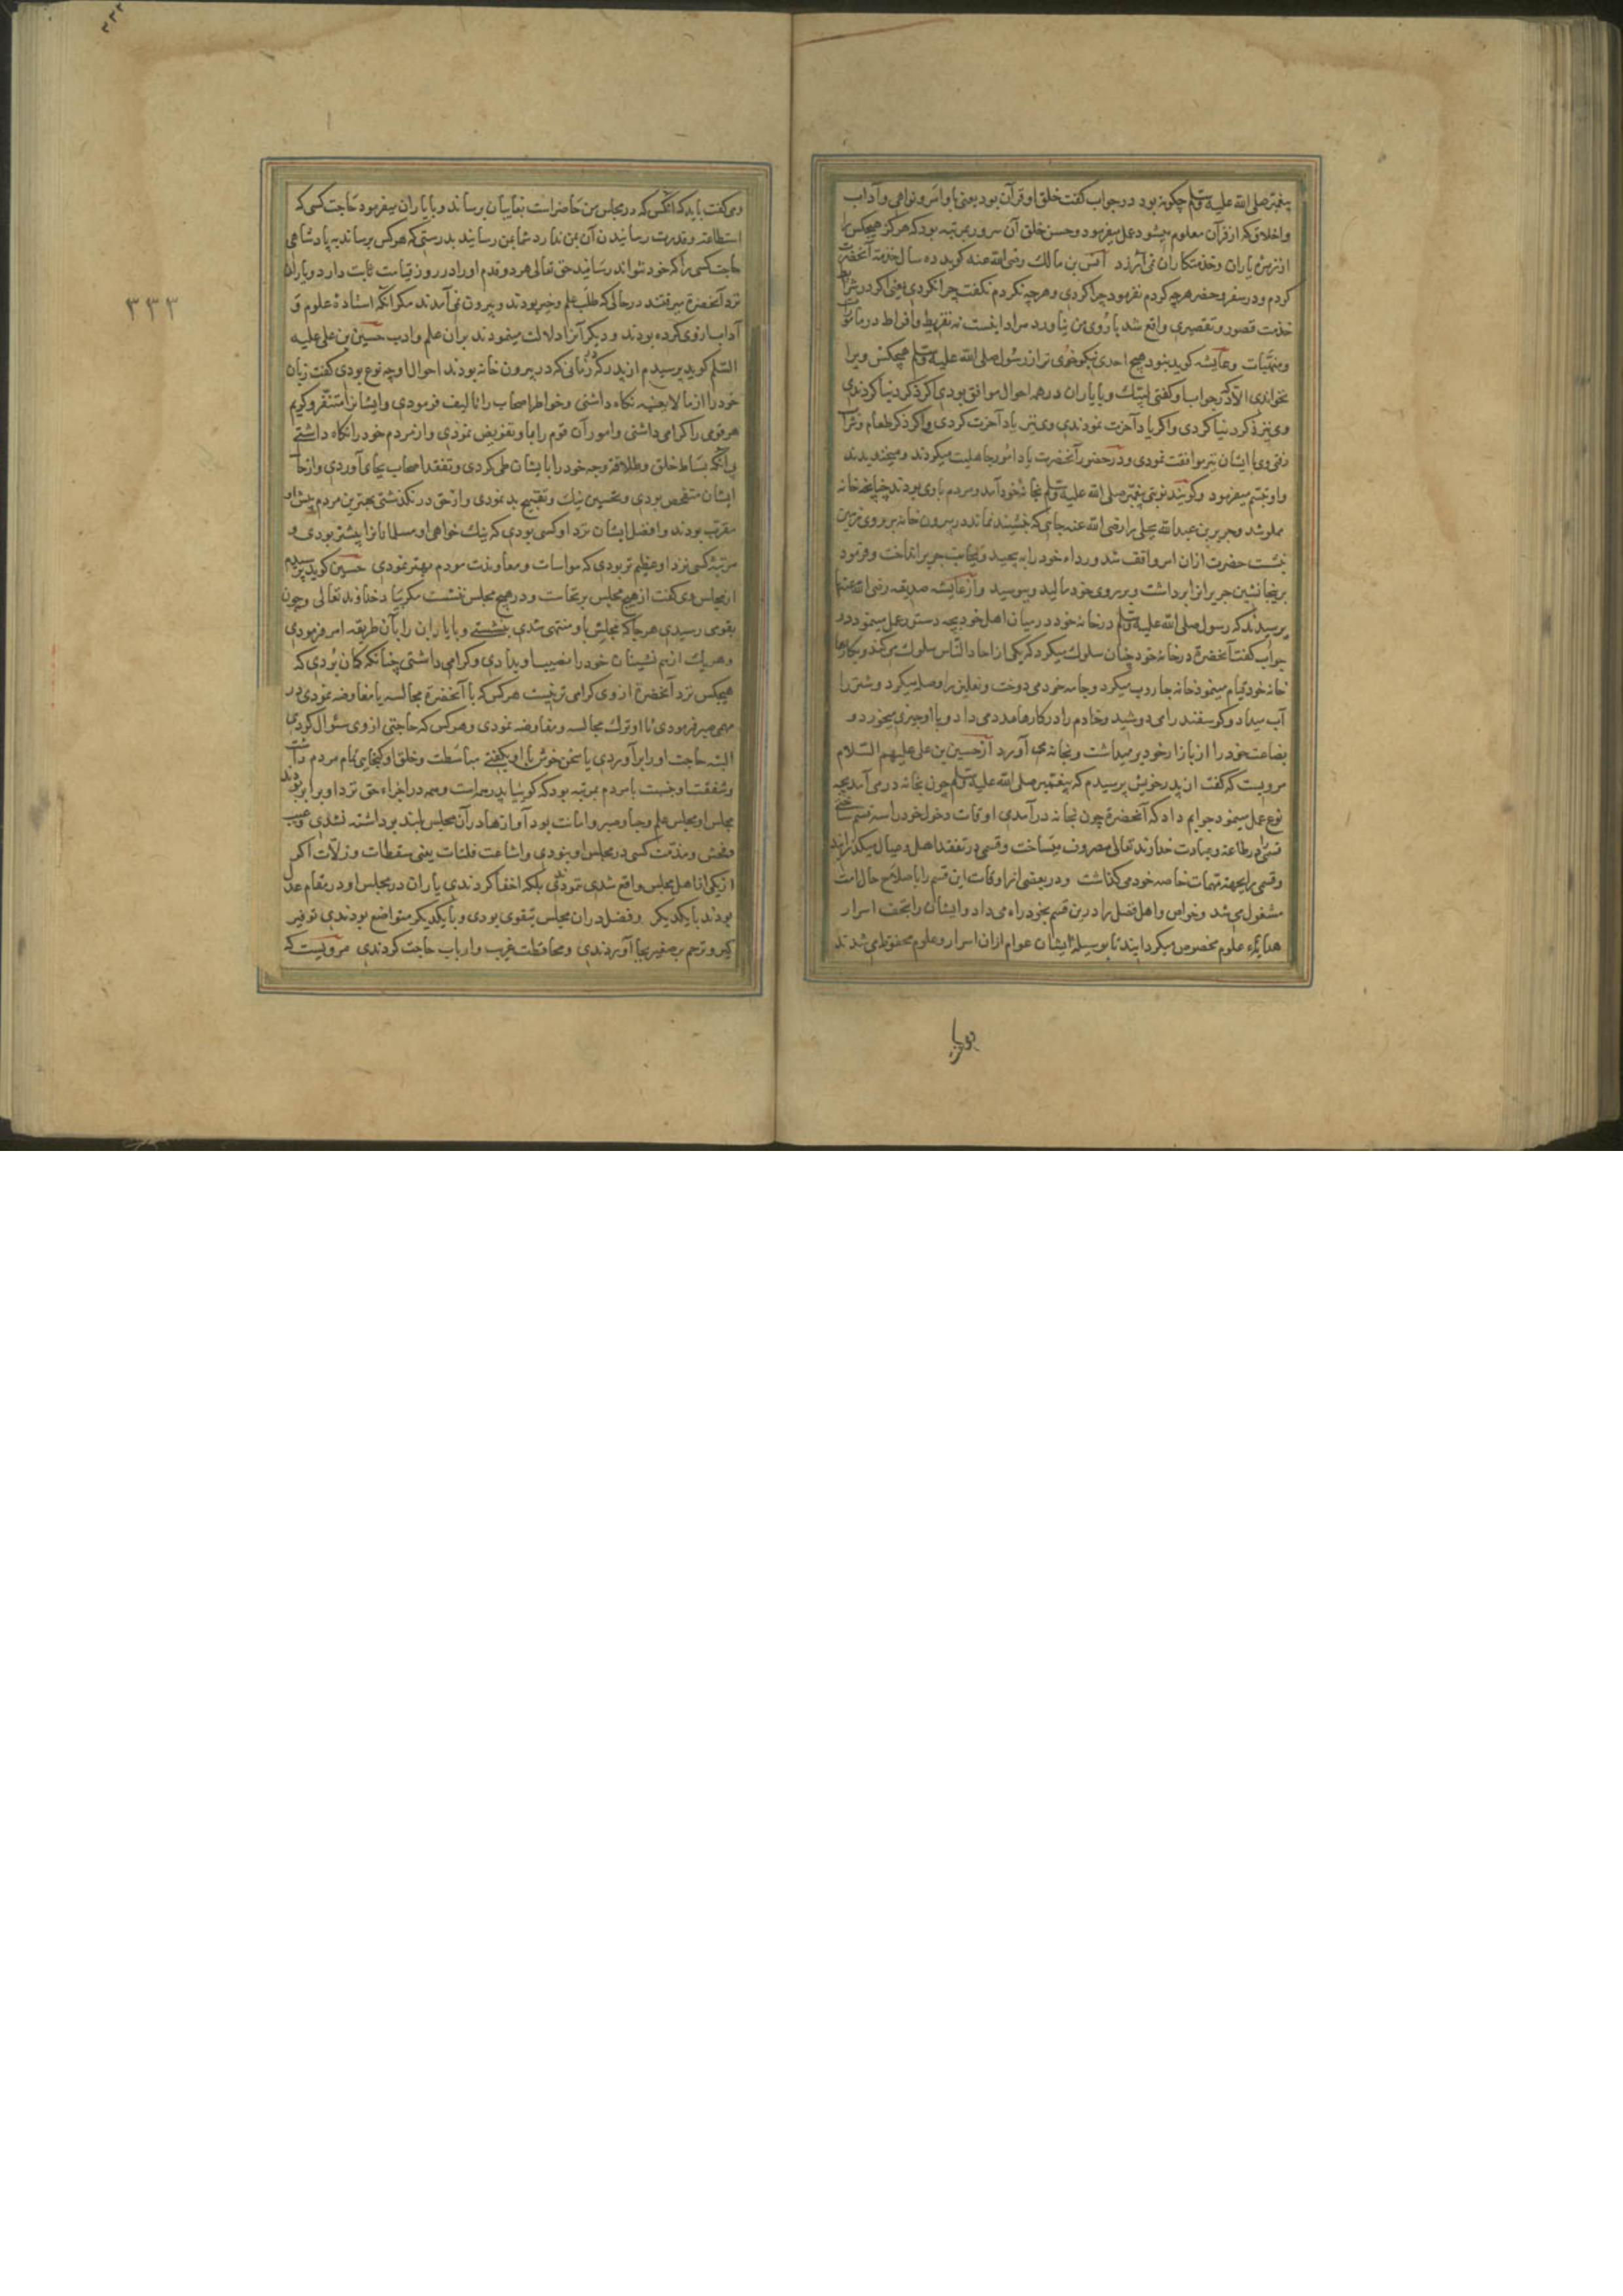 پیغمبر صلی الله علیه وسلم چکونه بود در جواب کفت خلق او قرآن بود یعنی باوامر و نواهی و آداب
و اخلاق که از قرآن معلوم میشود عمل میفرمود و حسن خلق آن سرور بمرتبه بود که هرکز هیچکس را
از زمرهٔ یاران و خدمتکاران نمی آزرد انس بن مالک رضی الله عنه کوید ده سال خدمة آنحضرت
کردم و در سفر و حضر هرچه کردم نفرمود چرا کردی و هرچه نکردم نکفت چرا نکردی یعنی اکر در شرایط
خدمت قصور و تقصیری واقع شد با روی من نیاورد مراد اینست نه تفریط و افراط در مامورات
و منهیات و عایشه کوید نبود هیچ احدی نیکو خوی تر از رسول صلی الله علیه وسلم هیچکس ویرا
نخواندی الا که در جواب او کفتی لبیک و با یاران در همه احوال موافق بودی اکر ذکر دنیا کردندی
وی نیز ذکر دنیا کردی و اکر یاد آخرت نمودندی وی نیز یاد آخرت کردی و اکر ذکر طعام و شراب
رفتی وی با ایشان نیز موافقت نمودی و در حضور آنحضرت یاد امور جاهلیت میکردند و میخندیدند
و او تبسم میفرمود و کویند نوبتی پیغمبر صلی الله علیه وسلم بخانهٔ خود آمد و مردم با وی بودند چنانچه خانه
مملو شد و جریر بن عبدالله بجلی را رضی الله عنه جایی که بنشیند نماند در بیرون خانه بر روی زمین
نشست حضرت ازان امر واقف شد و رداء خود را به پیچید و بجانب جریر انداخت و فرمود
برینجا نشین جریر انرا برداشت و بر روی خود مالید و ببوسید و از عایشه صدیقه رضی الله عنها
پرسیدند که رسول صلی الله علیه وسلم در خانهٔ خود در میان اهل خود بچه دستور عمل مینمود در
جواب کفت آنحضرة در خانهٔ خود چنان سلوک میکرد که یکی از احاد الناس سلوک میکند و بکارها
خانه خود قیام مینمود خانه جاروب میکرد و جامه خود می دوخت و نعلین را وصله میکرد و شتر را
آب میداد و کوسفند را می دوشید و خادم را در کارها مدد می داد و با او چیزی میخورد و
بضاعت خود را از بازار خود برمیداشت و بخانه می آورد از حسین بن علی علیهم السلام
مرویست که کفت از پدر خویش پرسیدم که پیغمبر صلی الله علیه وسلم چون بخانه در می آمد بچه
نوع عمل مینمود جوابم داد که آنحضرة چون بخانه در آمدی اوقات دخول خود را سه قسم ساختی
قسمی را در طاعة و عبادت خداوند تعالی مصروف میساخت و قسمی در تفقد اهل و عیال میکذرانید
و قسمی را بجهة مهمات خاصه خود می کذاشت و در بعضی از اوقات این قسم را باصلاح حال امت
مشغول می شد و خواص و اهل فضل را درین قسم بخود راه می داد و ایشان را بتحف اسرار
هدایای علوم مخصوص میکردانید تا بوسیلهٔ ایشان عوام ازان اسرار و علوم محفوظ می شدند
وی کفت باید که انکس که در مجلس من حاضر است بغایبان رساند و با یاران میفرمود حاجت کسی که
استطاعة و قدرت رسانیدن آن بمن ندارد شما بمن رسانید بدرستی که هرکس برساند به پادشاهی
حاجت کسی را که خود نتواند رسانید حق تعالی هر دو قدم او را در روز قیامت ثابت دارد و یاران
نزد آنحضرة میرفتند در حالی که طلب علم و خیر بودند و بیرون نمی آمدند مکر انکه استفادهٔ علوم و
آداب از وی کرده بودند و دیکر آنرا دلالت مینمودند بران علم و ادب حسین بن علی علیه
السلم کوید پرسیدم از پدر که در زمانی که در بیرون خانه بودند احوال او چه نوع بودی کفت زبان
خود را از ما لایعنیه نکاه داشتی و خواطر اصحاب را تالیف فرمودی و ایشانرا متنفر و کریم
هر قومی را کرامی داشتی و امور آن قوم را باو تفویض نمودی و از مردم خود را نکاه داشتی
بی آنکه بساط خلق و طلاقة وجه خود را با ایشان طی کردی و تفقد اصحاب بجای آوردی و از حال
ایشان متفحص بودی و تحسین نیک و تقبیح بد نمودی و از حق در نکذشتی بهترین مردم پیش او
مقرب بودند و افضل ایشان نزد او کسی بودی که نیک خواهی او مسلمانانرا بیشتر بودی و
مرتبهٔ کسی نزد او عظیم تر بودی که مواسات و معاونت مردم بهتر نمودی حسین کوید پرسیدم
از مجلس وی کفت از هیچ مجلس برنخاست و در هیچ مجلس ننشست مکر بیاد خداوند تعالی و چون
بقومی رسیدی هرجا که مجلس باو منتهی شدی بنشستی و با یاران را بآن طریقه امر فرمودی
و هر یک از هم نشینان خود را نصیب او بدادی و کرامی داشتی چنانکه کمان بردی که
هیچکس نزد آنحضرة از وی کرامی تر نیست هرکس که با آنحضرة مجالسه یا مفاوضه نمودی در
مهمی صبر فرمودی تا او ترک مجالسه و مفاوضه نمودی و هرکس که حاجتی از وی سئوال کردی
البته حاجت او را برآوردی یا سخن خوش با او بکفتی مباسطت و خلق او کنجایی تمام مردم داشت
و شفقت او نسبت با مردم بمرتبه بود که کوییا پدر همه است و همه در اجراء حق نزد او برابر بودند
مجلس او مجلس علم و حیا و صبر و امانت بود آوازها در آن مجلس بلند برداشته نشدی و عیب
و فحش و مذمت کسی در مجلس او نبودی و اشاعت فلتات یعنی سقطات و زلات اکر
از یکی از اهل مجلس واقع شدی ننمودندی بلکه اخفا کردندی یاران در مجلس او در مقام عدل
بودند با یکدیکر و فضل دران مجلس بتقوی بودی و با یکدیکر متواضع بودندی توقیر
کبیر و ترحم بر صغیر بجا آوردندی و محافظت غریب و ارباب حاجت کردندی مرویست که
۳۳۳